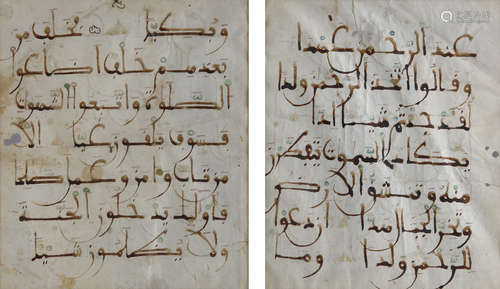 عند الرحمن عهدا
وقالوا اتخذ الرحمن ولدا
لقد جئتم شيا ادا
يكاد السموت يتفطرن
منه وتنشق الارض
وتخر الجبال هدا ان دعوا
للرحمن ولدا وما
وبكيا فخلف من
بعدهم خلف اضاعوا
الصلوة واتبعوا الشهوت
فسوف يلقون غيا الا
من تاب وامن وعمل صلحا
فاوليك يدخلون الجنة
ولا يظلمون شيا